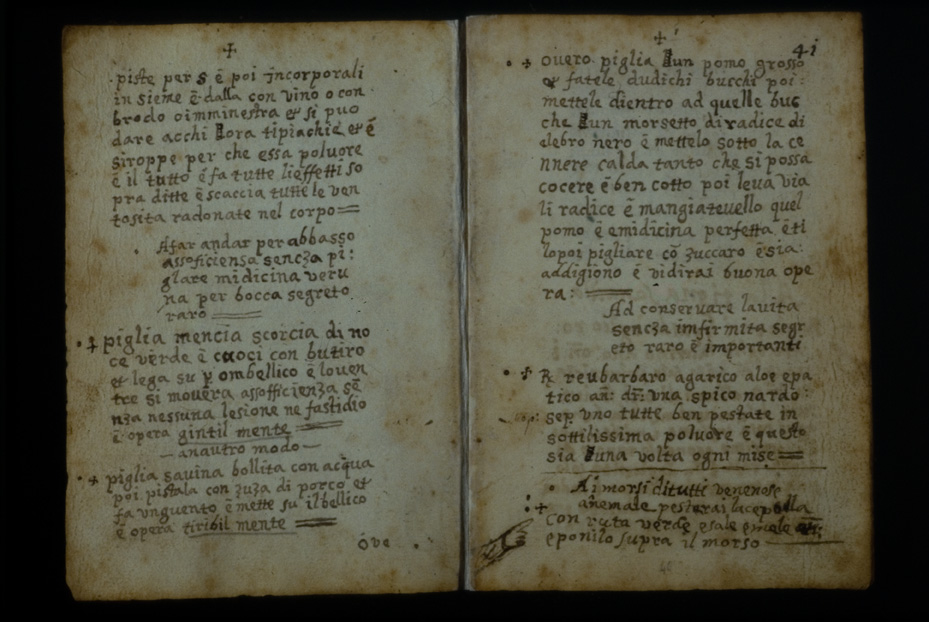 piste per s è poi incorporali
in sieme è dalla con vino o con
brodo o imminestra et si puo
dare acchi lora tipiachie et è
siroppe per che essa poluore
è il tutto è fa tutte lieffetti so
pra ditte è scaccia tutte le ven
tosita radonate nel corpo
Afar andar per abbasso
assoficiensa sencza pi:
glare midicina veru
na per bocca segreto
raro
piglia mencia scorcia di no
ce verde è cuoci con butiro
et lega su p ombellico è louen
tre si mouera assofficienza sē
nza nessuna lesione ne fastidio
è opera gintil mente
anautro modo
piglia sauina bollita con acqua
poi pistala con zuza di porco et
fa unguento è mette su il bellico
è opera tiribil mente
Ove
41
ouero piglia un pomo grosso
et fatele dudichi bucchi poi:
mettele dientro ad quelle buc
che un morsetto di radice di
elebro nero è mettelo sotto la ce
nnere calda tanto che si possa
cocere è ben cotto poi leua via
li radice è mangiatevello quel
pomo è emidicina perfetta è ti
lopoi pigliare cō zuccaro è sia:
addigiono è vidirai buona ope
ra:
Ad conservare la uita
sencza imfirmita segr
eto raro è importanti
℞ reubarbaro agarico aloe epa
tico añ: dr: vna spico nardo
sep: vno tutte ben pestate in
sottilissima poluore è questo
sia una volta ogni mise
Ai morsi ditutti venenose
anemale pesterai la cepolla
con ruta verde e sale e mele
e ponilo supra il morso